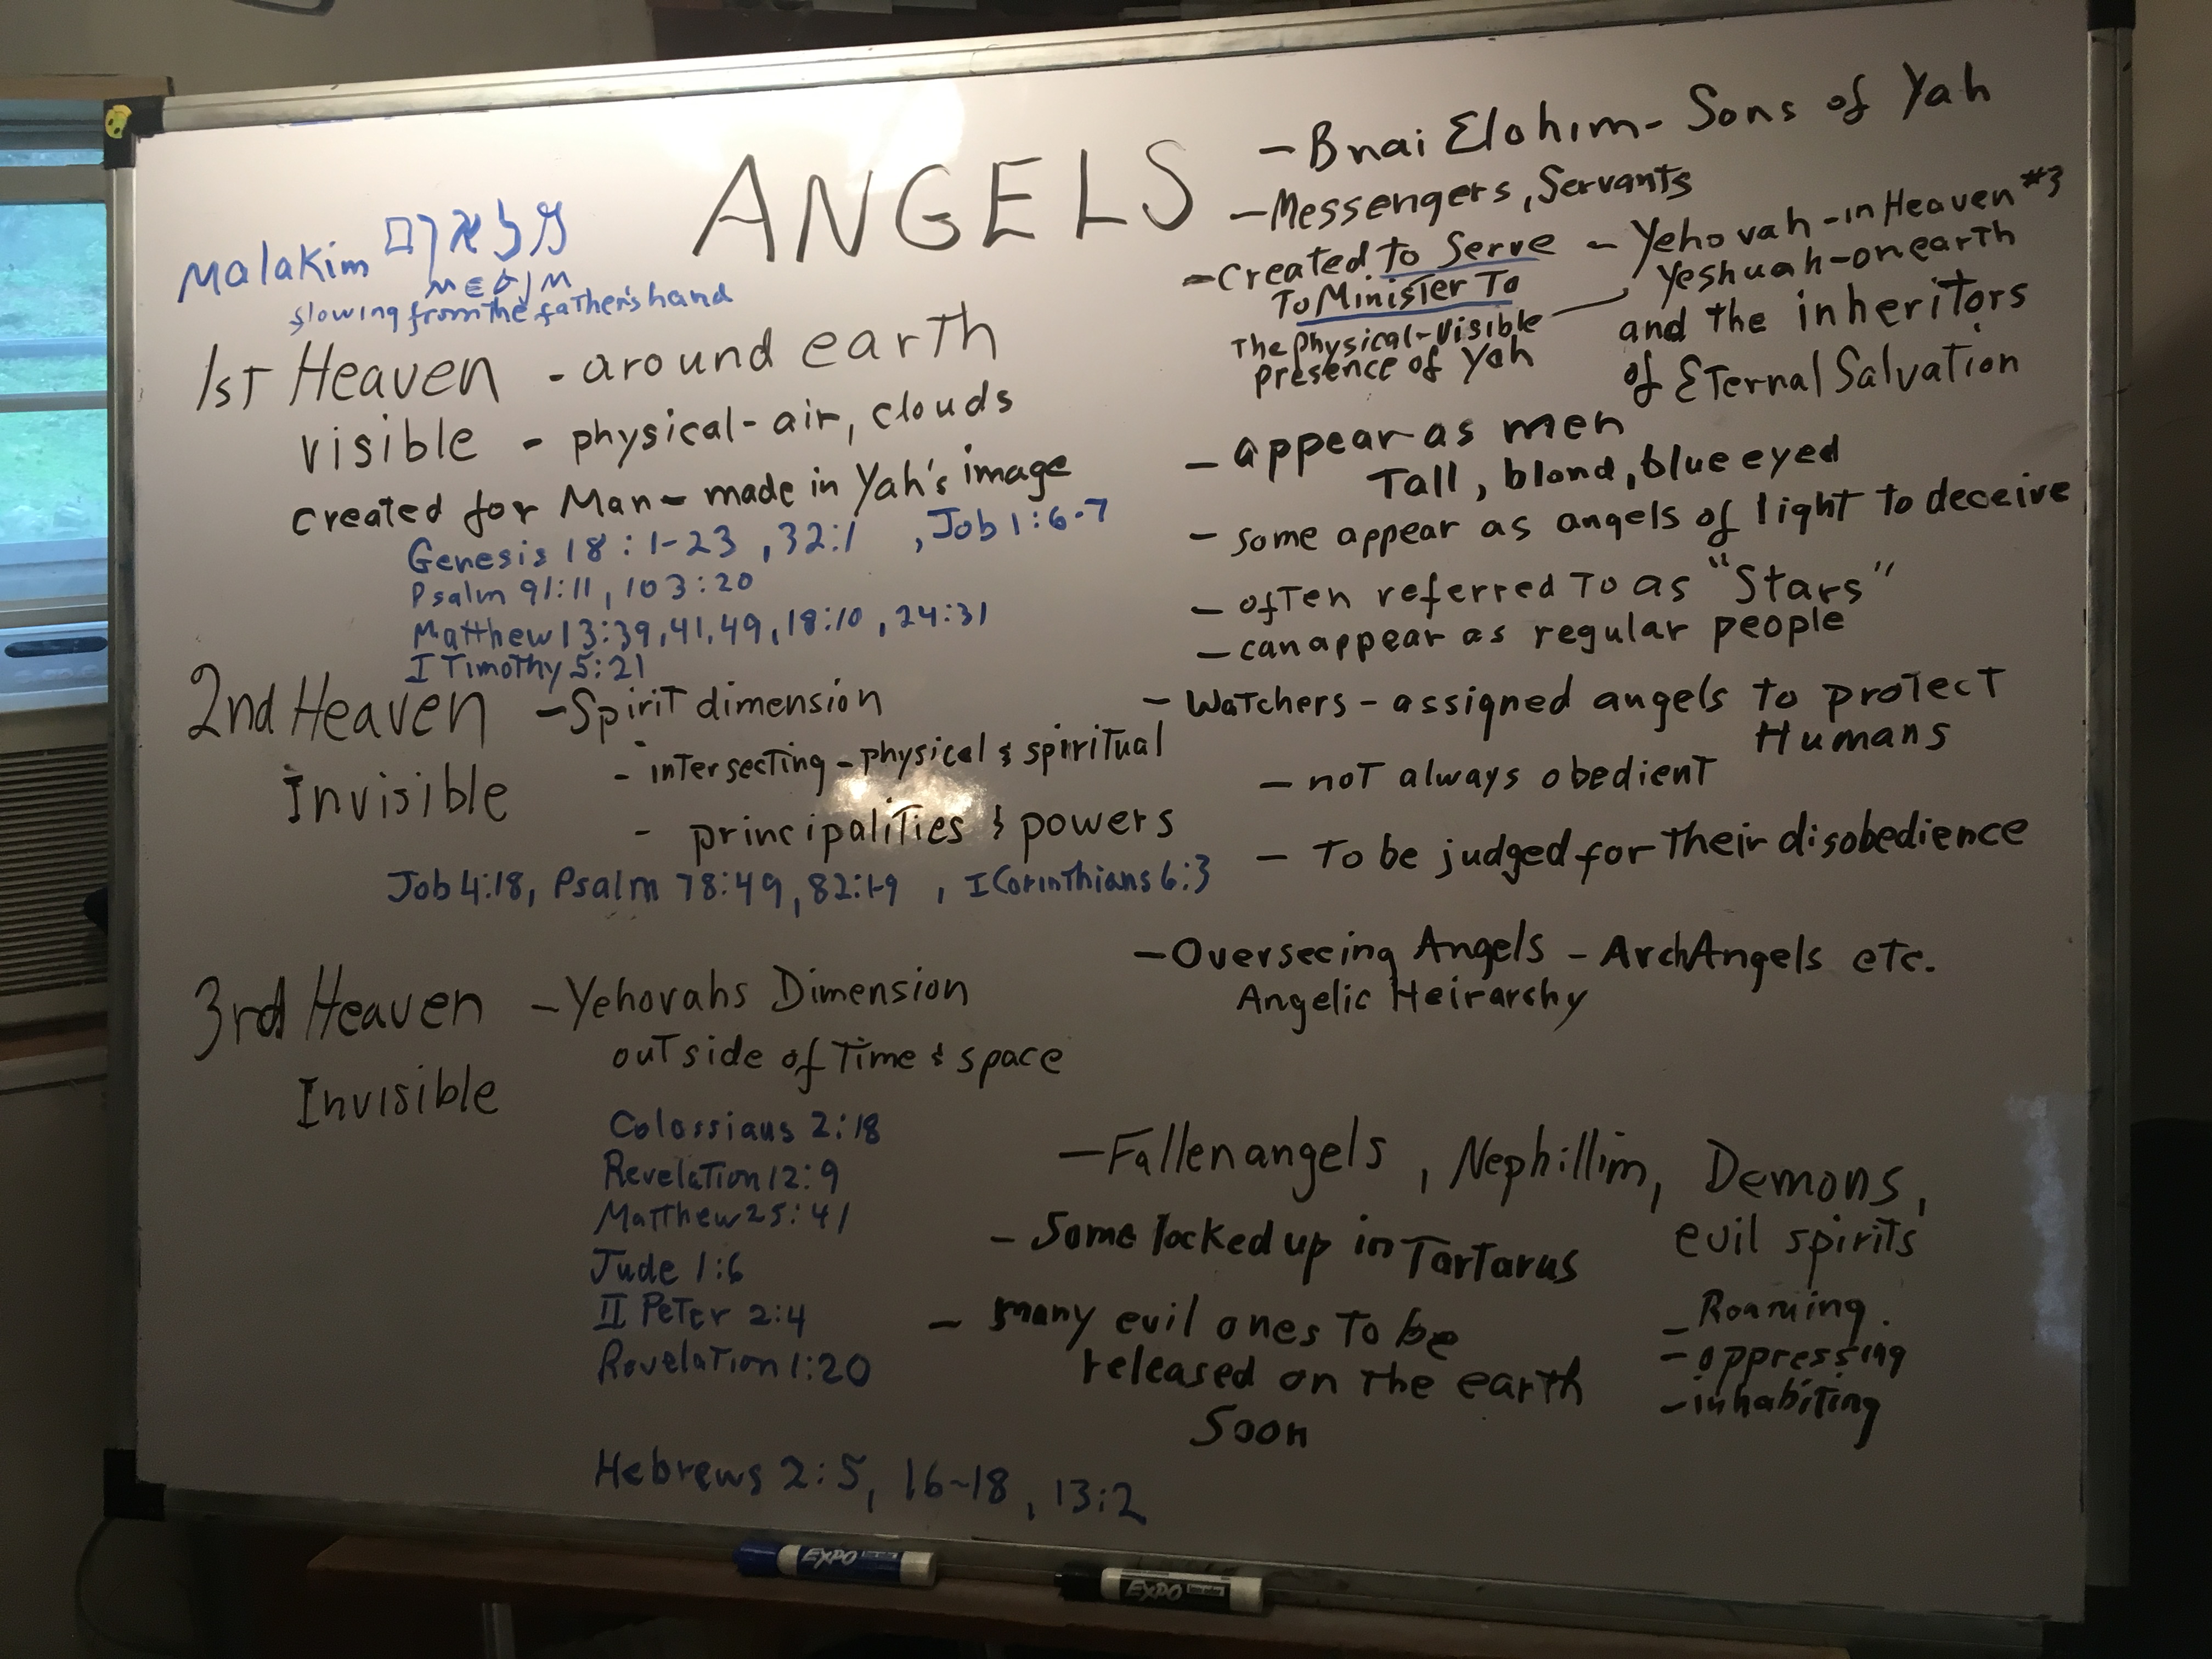 ANGELS
Malakim
slowing from the father's hand
1st Heaven - around earth
visible - physical - air, clouds
created for Man - made in Yah's image
Genesis 18:1-23, 32:1, Job 1:6-7
Psalm 91:11, 103:20
Matthew 13:39, 41, 49, 18:10, 24:31
I Timothy 5:21
2nd Heaven - Spirit dimension
Invisible - intersecting - physical & spiritual
- principalities & powers
Job 4:18, Psalm 78:49, 82:1-9, I Corinthians 6:3
3rd Heaven - Yehovahs Dimension
outside of Time & space
Invisible
Colossians 2:18
Revelation 12:9
Matthew 25:41
Jude 1:6
II Peter 2:4
Revelation 1:20
Hebrews 2:5, 16-18, 13:2
- Bnai Elohim - Sons of Yah
- Messengers, Servants
- Created to Serve - Yehovah - in Heaven #3
To Minister To Yeshuah - on earth
The Physical - Visible and the inheritors
presence of Yah of Eternal Salvation
- appear as men
Tall, blond, blue eyed
- some appear as angels of light to deceive
- often referred To as "Stars"
- can appear as regular people
- Watchers - assigned angels to protect
Humans
- not always obedient
- To be judged for their disobedience
- Overseeing Angels - ArchAngels etc.
Angelic Heirarchy
- Fallen angels, Nephillim, Demons,
evil spirits
- Some locked up in Tartarus
- many evil ones to be
released on the earth
Soon
- Roaming
- oppressing
- inhabiting
EXPO
EXPO